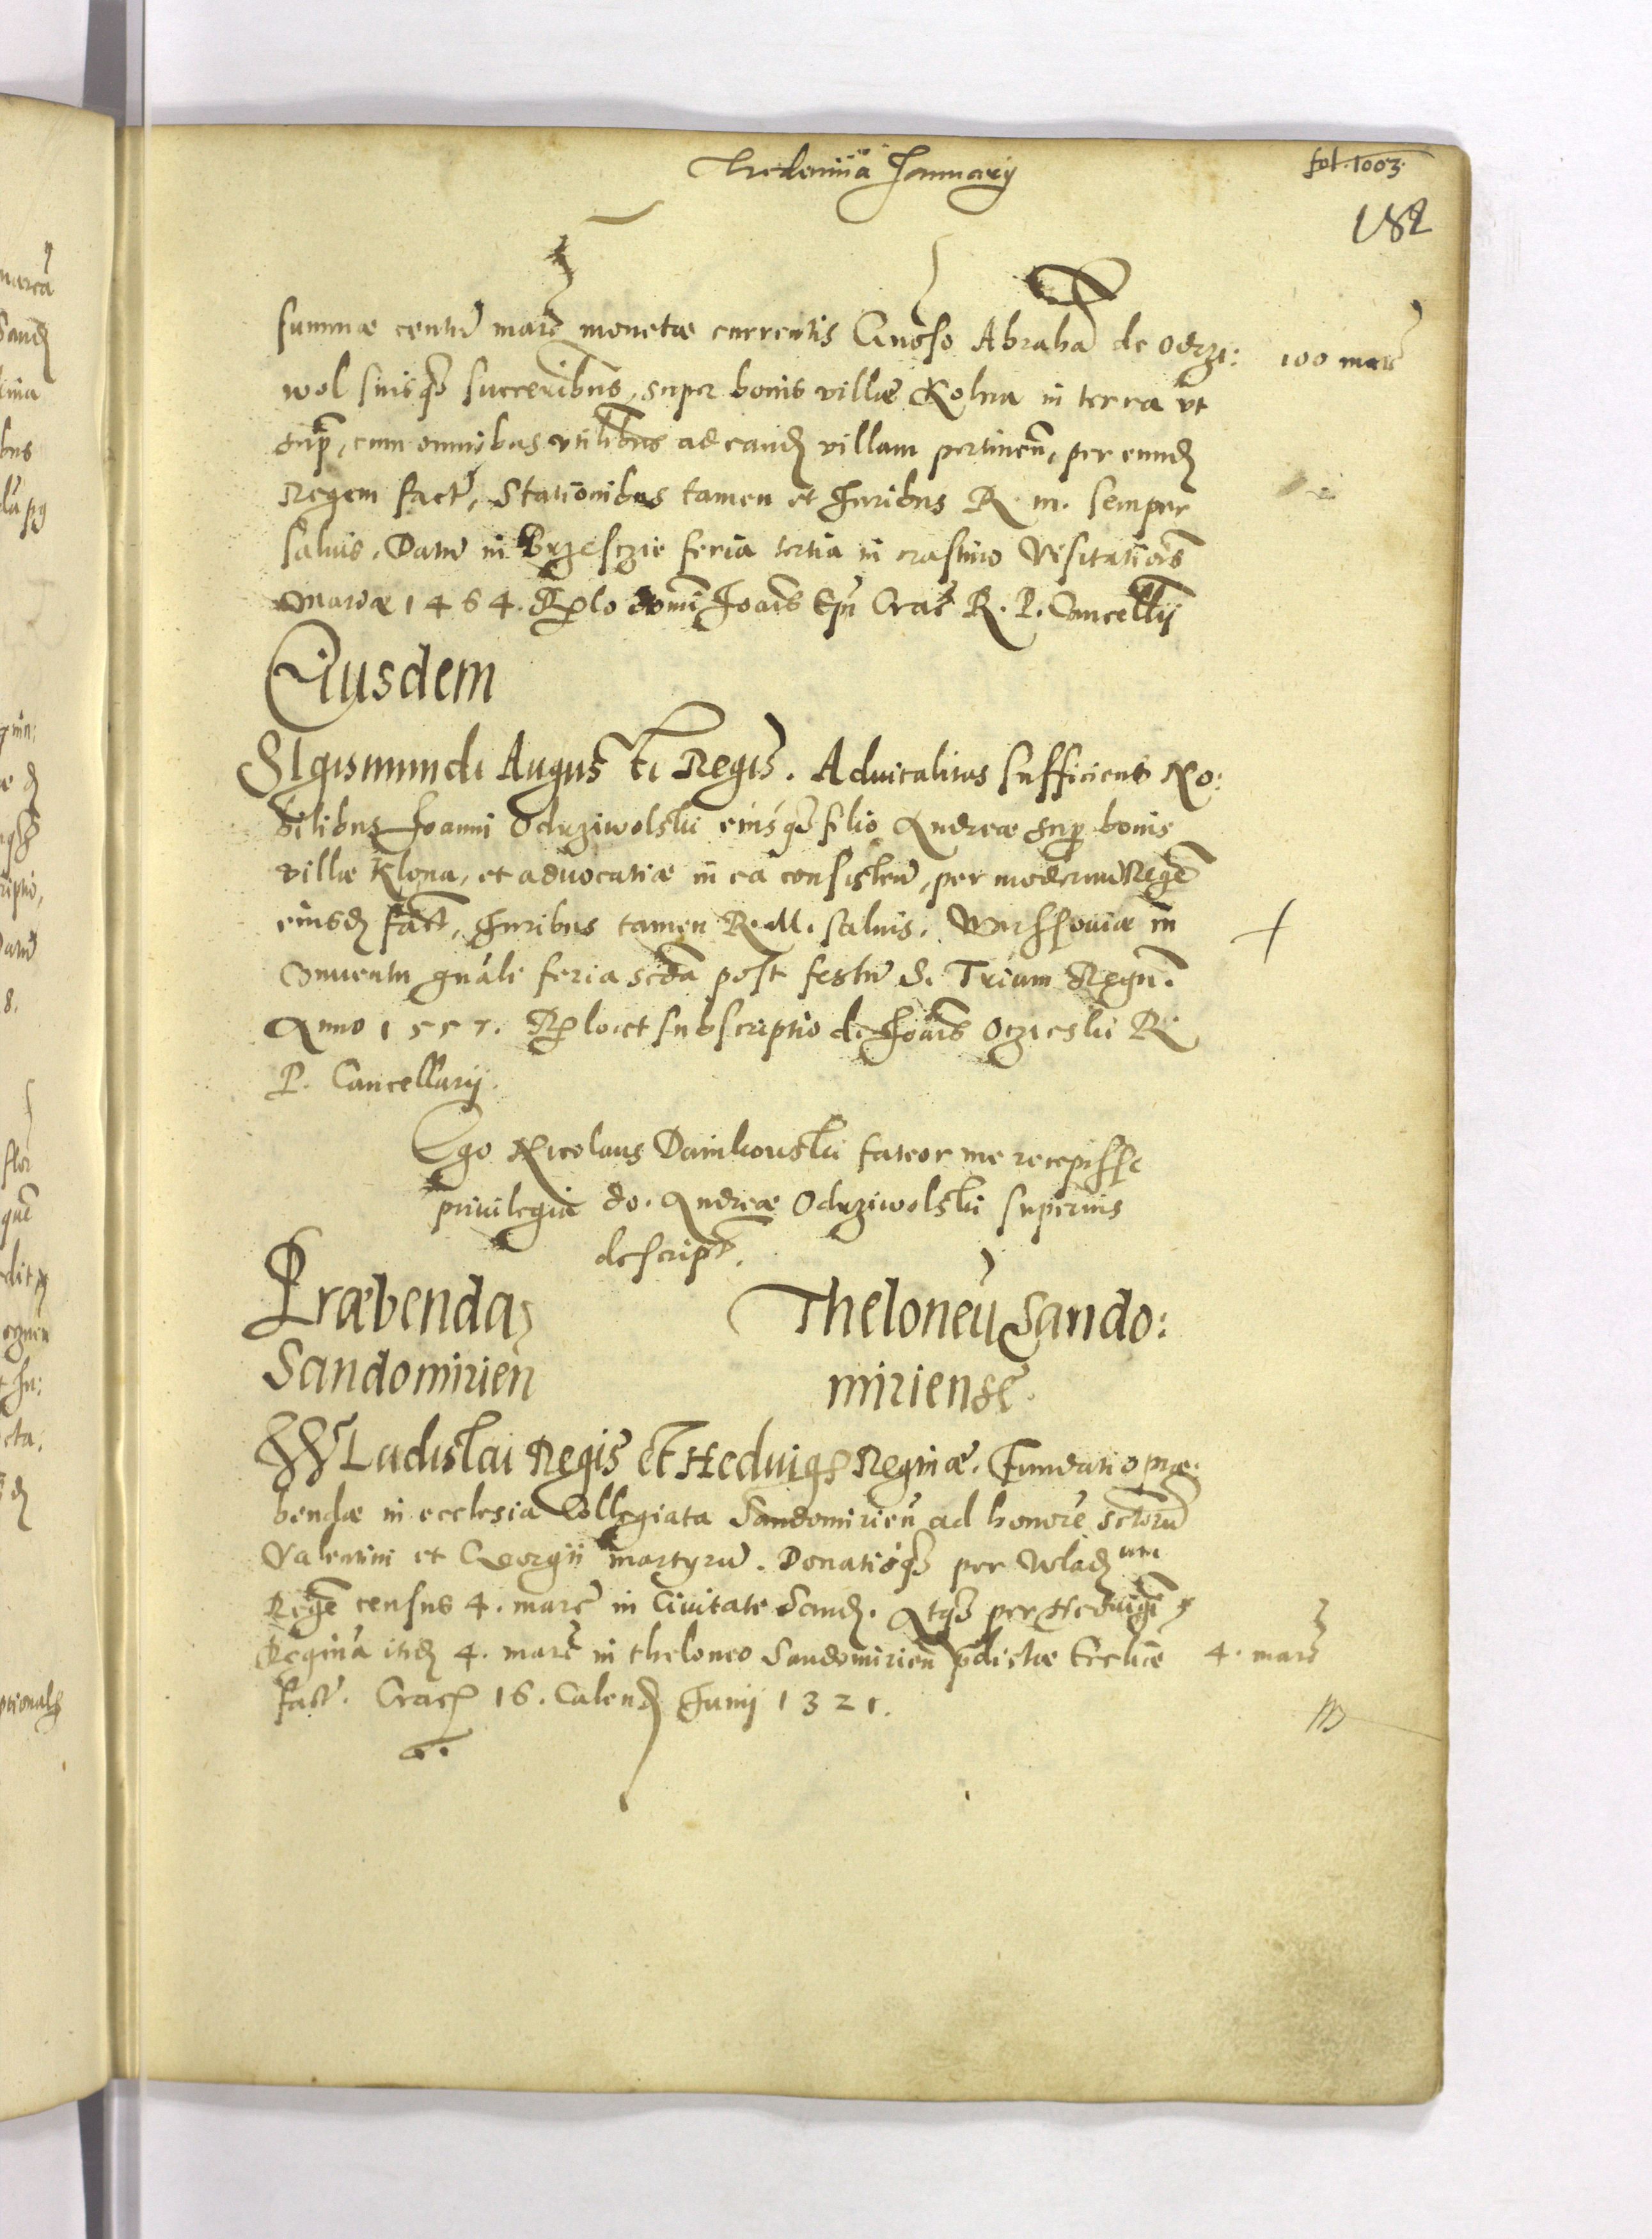 Tredecima January
fol. 1003.
182
summæ centū marc̄ monetæ currentis Gnoso Abrahā de Odrzi:
100 marc̄
wol suisq̃ʒ succeribus, super bonis villæ Kolna in terra vt
supra, cum omnibus vtilibus ad eandʒ villam pertineñ, per eundʒ
Regem fact̄, Stationibus tamen et Iuribus R. m. semper
saluis. Datū in Brzesczie feria tertia in crastino Visitatiōis
Mariæ 1464. Rᵉlo domī Joānis Epī Crac̄ R. P. Cancellrij
Eiusdem
SIgismundi Augusti Regis. Aduitalitas sufficiens No:
bilibus Joanni Odrziwolski eiusq̃ʒ filio Andreæ super bonis
villæ Klona, et aduocatiæ in ea consisteñ, per modernū Regē
eiusdʒ fact̄, Iuribus tamen R. M. saluis. Warssouiæ in
Conuentu gnāli feria scdā post festū S. Trium Regū.
Anno 1557. Rᵉlo et subscriptio d. Joānis Oczieski R.
P. Cancellarij.
Ego Nicolaus Dambowski fateor me recepisse
priuilegiū do. Andreæ Odrziwolski superius
descript̄.
Præbenda
Sandomirieñ
Theloneū Sando:
miriense.
WLadislai Regis et Heduigis Reginæ. Fundatio præ:
bendæ in ecclesia Collegiata Sandomirieñ ad honorē sctorū
Valentini et Georgii martyrū. Donatioq̃ʒ per Wladʒ um
Regē census 4. marc̄ in Ciuitate Sandʒ. Atq̃ʒ per Heduigē
Reginā itidʒ 4. marc̄ in theloneo Sandomirieñ p̄dictæ Ecclīæ
4. marc̄
fact̄. Crac̄ 16. Calendʒ Junij 1321.